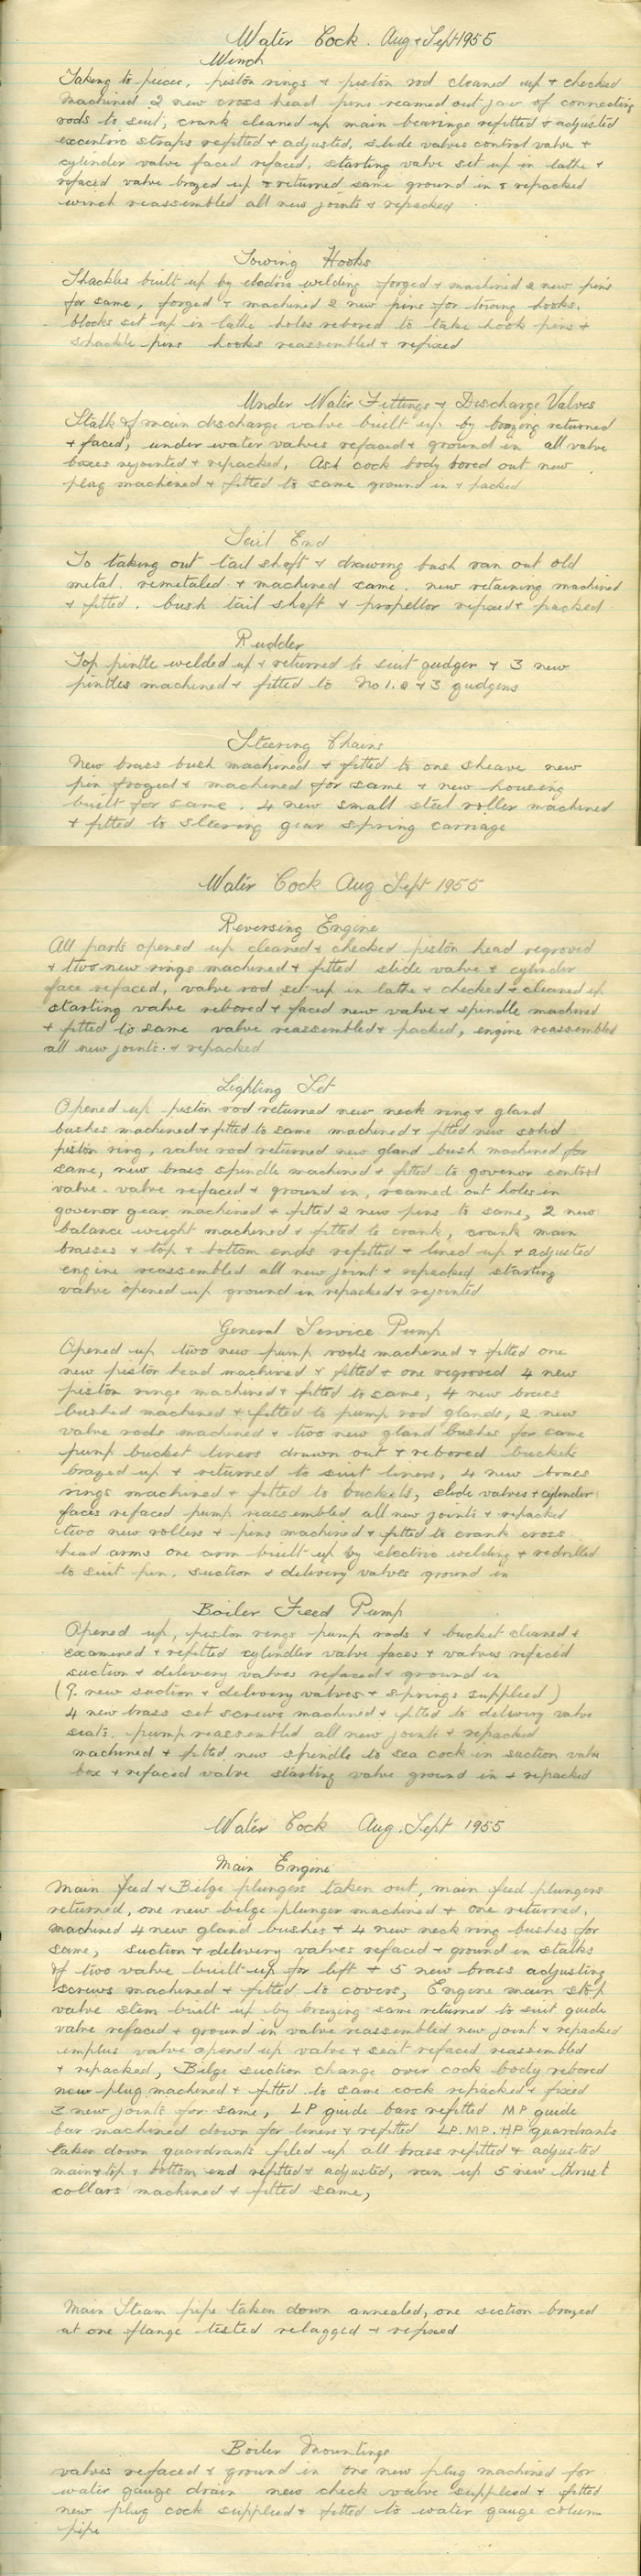 Water Cock. Aug & Sept 1955
Winch
Taking to pieces, piston rings & piston rod cleaned up & checked
Machined 2 new cross head pins reamed out jaw of connecting
rods to suit, crank cleaned up main bearings refitted & adjusted
excentric straps refitted & adjusted, slide valves control valve &
cylinder valve faced refaced, starting valve set up in lathe &
refaced valve brazed up & returned same ground in & repacked
winch reassembled all new joints & repacked
Towing Hooks
Shackles built up by electric welding forged & machined 2 new pins
for same, forged & machined 2 new pins for towing hooks,
blocks set up in lathe holes rebored to take hook pins &
shackle pins hooks reassembled & refixed
Under Water Fittings & Discharge Valves
Stalk of main discharge valve built up by brazing returned
& faced, under water valves refaced & ground in all valve
boxes rejointed & repacked, Ash cock body bored out new
plag machined & fitted to same ground in & packed
Tail End
To taking out tail shaft & drawing bush ran out old
metal. remetaled & machined same. new retaining machined
& fitted. bush tail shaft & propellor refixed & packed
Rudder
Top pintle welded up & returned to suit gudger & 3 new
pintles machined & fitted to No 1. 2 & 3 gudgins
Steering Chains
New brass bush machined & fitted to one sheave new
pin froged & machined for same & new housing
built for same. 4 new small steel roller machined
& fitted to steering gear spring carriage
Water Cock Aug Sept 1955
Reversing Engine
All parts opened up cleaned & checked piston head regroved
& two new rings machined & fitted slide valve & cylinder
face refaced, valve rod set up in lathe & checked & cleaned up
starting valve rebored & faced new valve & spindle machined
& fitted to same valve reassembled & packed, engine reassembled
all new joints. & repacked
Lighting Set
Opened up piston rod returned new neck ring & gland
bushes machined & fitted to same machined & fitted new solid
piston ring, valve rod returned new gland bush machined for
same, new brass spindle machined & fitted to govenor control
valve. valve refaced & ground in, reamed out holes in
govenor gear machined & fitted 2 new pins to same, 2 new
balance weight machined & fitted to crank, crank main
brasses & top & bottom ends refitted & lined up & adjusted
engine reassembled all new joint & repacked starting
valve opened up ground in repacked & rejointed
General Service Pump
Opened up two new pump rods machined & fitted one
new piston head machined & fitted & one regroved 4 new
piston rings machined & fitted to same, 4 new brass
bushed machined & fitted to pump rod glands, 2 new
valve rods machined & two new gland bushes for same
pump bucket liners drawn out & rebored buckets
brazed up & returned to suit liners, 4 new brass
rings machined & fitted to buckets, slide valves & cylinder
faces refaced pump reassembled all new joints & repacked
two new rollers & pins machined & fitted to crank cross
head arms one arm built up by electric welding & redrilled
to suit pin. suction & delivery valves ground in
Boiler Feed Pump
Opened up, piston rings pump rods & bucket cleaned &
examined & refitted cylindler valve faces & valves refaced
suction & delivery valves refaced & ground in
(9. new suction & delivery valves & springs supplied)
4 new brass set screws machined & fitted to delivery valve
seats. pump reassembled all new joints & repacked
machined & fitted new spindle to sea cock in suction valve
box & refaced valve starting valve ground in & repacked
Water Cock Aug. Sept 1955
Main Engine
Main feed & Bilge plungers taken out, main feed plungers
returned, one new bilge plunger machined & one returned,
machined 4 new gland bushes & 4 new neck ring bushes for
same, suction & delivery valves refaced & ground in stalks
of two valve built up for lift & 5 new brass adjusting
screws machined & fitted to covers, Engine main stop
valve stem built up by brazing same returned to suit guide
valve refaced & ground in valve reassembled new joint & repacked
implus valve opened up valve & seat refaced reassembled
& repacked, Bilge suction change over cock body rebored
new plug machined & fitted to same cock repacked & fixed
3 new joints for same, LP guide bars refitted MP guide
bar machined down for liners & refitted LP. MP. HP quardrants
taken down quardrants filed up all brass refitted & adjusted
main & top & bottom end refitted & adjusted, ran up 5 new thrust
collars machined & fitted same,
Main Steam pipe taken down annealed, one section brazed
at one flange tested relagged & refixed
Boiler Mountings
valves refaced & ground in one new plug machined for
water gauge drain new check valve supplied & fitted
new plug cock supplied & fitted to water gauge colum
pipe